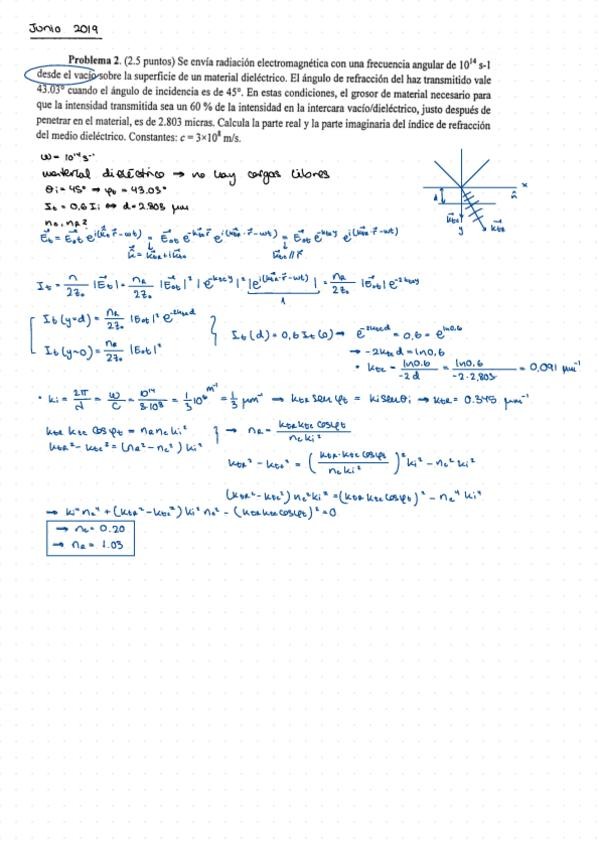 Junio 2019
Problema 2. (2.5 puntos) Se envía radiación electromagnética con una frecuencia angular de 10¹⁴ s-1
desde el vacío sobre la superficie de un material dieléctrico. El ángulo de refracción del haz transmitido vale
43.03º cuando el ángulo de incidencia es de 45º. En estas condiciones, el grosor de material necesario para
que la intensidad transmitida sea un 60 % de la intensidad en la intercara vacío/dieléctrico, justo después de
penetrar en el material, es de 2.803 micras. Calcula la parte real y la parte imaginaria del índice de refracción
del medio dieléctrico. Constantes: c = 3×10⁸ m/s.
ω = 10¹⁴ s⁻¹
material dieléctrico → no hay cargas libres
θi = 45° → φt = 43.03°
It = 0,6 Ii ↔ d = 2.803 μm
It(y=d) = nR/2Z₀ |E₀t|² e^-2ktcd
It(y=0) = nR/2Z₀ |E₀t|²
It(d) = 0,6 It(0) → e^-2ktcd = 0,6 = e^ln0,6
→ -2ktc d = ln0,6
• ktc = ln0.6/-2d = ln0.6/-2·2,803 = 0,091 μm⁻¹
• ki = 2π/λ = ω/c = 10¹⁴/3·10⁸ = 1/3 10⁶ m⁻¹ = 1/3 μm⁻¹ → ktR sen φt = ki senθi → ktR = 0.345 μm⁻¹
ktR ktc cos φt = nR nc ki² } → nR = ktR ktc cosφt / nc ki²
ktR² - ktc² = (nR² - nc²) ki²
ktR² - ktc² = (ktR·ktc cosφt / nc ki²)² ki² - nc² ki²
(ktR² - ktc²) nc² ki² = (ktR ktc cosφt)² - nc⁴ ki⁴
→ ki⁴ nc⁴ + (ktR² - ktc²) ki² nc² - (ktR ktc cosφt)² = 0
→ nc = 0.20
→ nR = 1.03